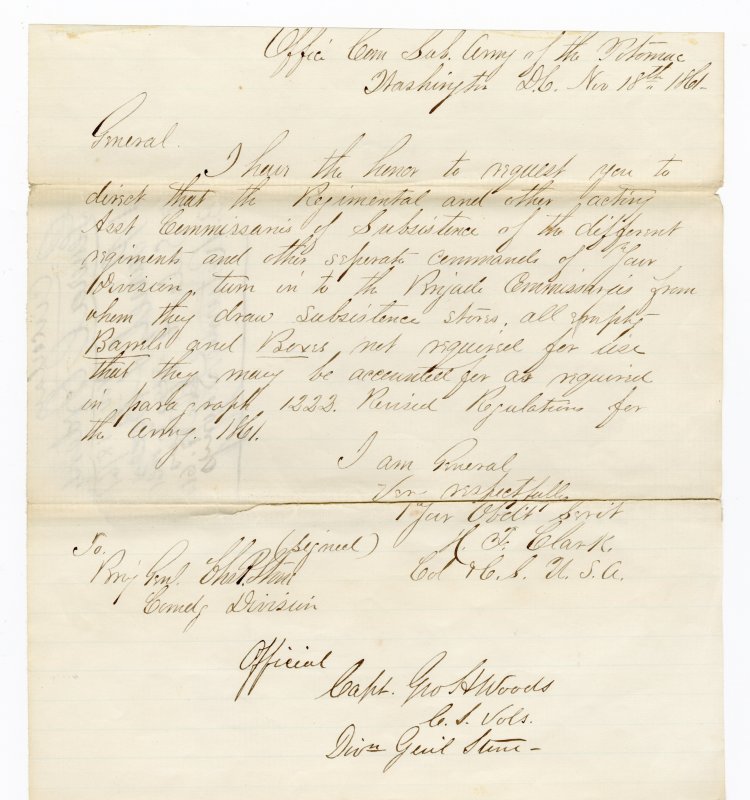 Office Com Sub. Army of the Potomac
Washington D.C. Nov 18th 1861-
General.
I have the honor to request you to
direct that the Regimental and other acting
Asst Commissaries of Subsistence of the different
regiments and other seperate commands of Your
Division turn in to the Brigade Commissaries from
whom they draw subsistence stores, all empty
Barrels and Boxes not required for use
that they may be accounted for as required
in paragraph 1223. Revised Regulations for
the Army. 1861.
I am General
Very respectfully
Your Obedt Servt
(Signed) H. F. Clark.
Col & C. S. U. S. A.
To.
Brig Genl. Chas. P. Stone
Comdg Division
Official
Capt. Geo H Woods
C. S. Vols.
Divn Genl Stone-